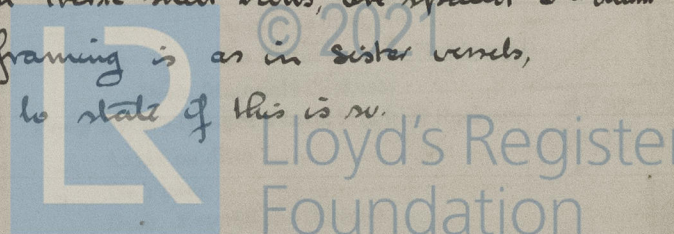 © 2021
framing is as in sister vessels,
to state if this is so.
LR
Lloyd's Register
Foundation